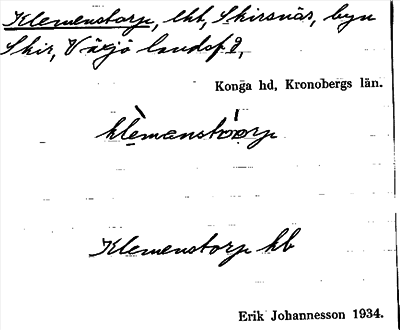 Klemenstorp, lht, Skirsnäs, byn
Skir, Växjö landsf.d,
Konga hd, Kronobergs län.
klèmənstórp
Klemenstorp kb
Erik Johannesson 1934.